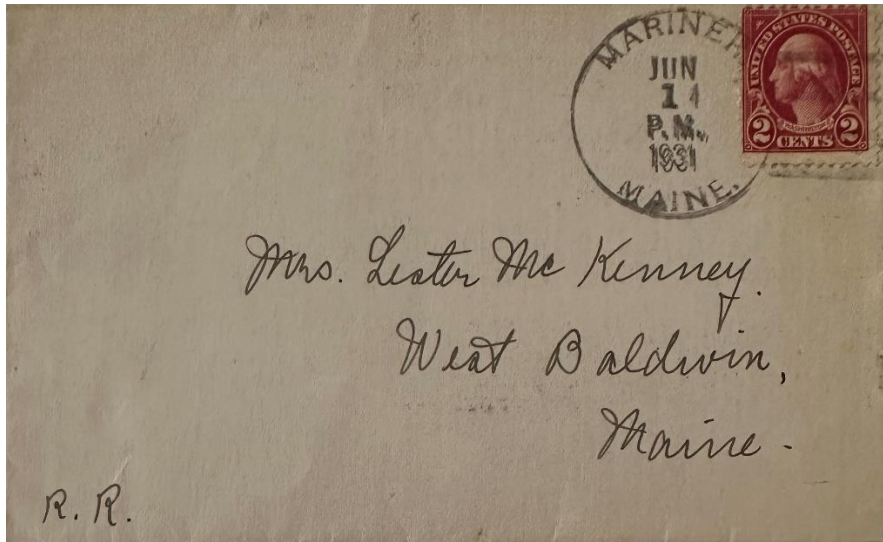 JUN
14
P.M.
1931
MAINE.
UNITED STATES POSTAGE
WASHINGTON
2 CENTS 2
Mrs. Lester Mc Kenney.
West Baldwin,
Maine -
R. R.